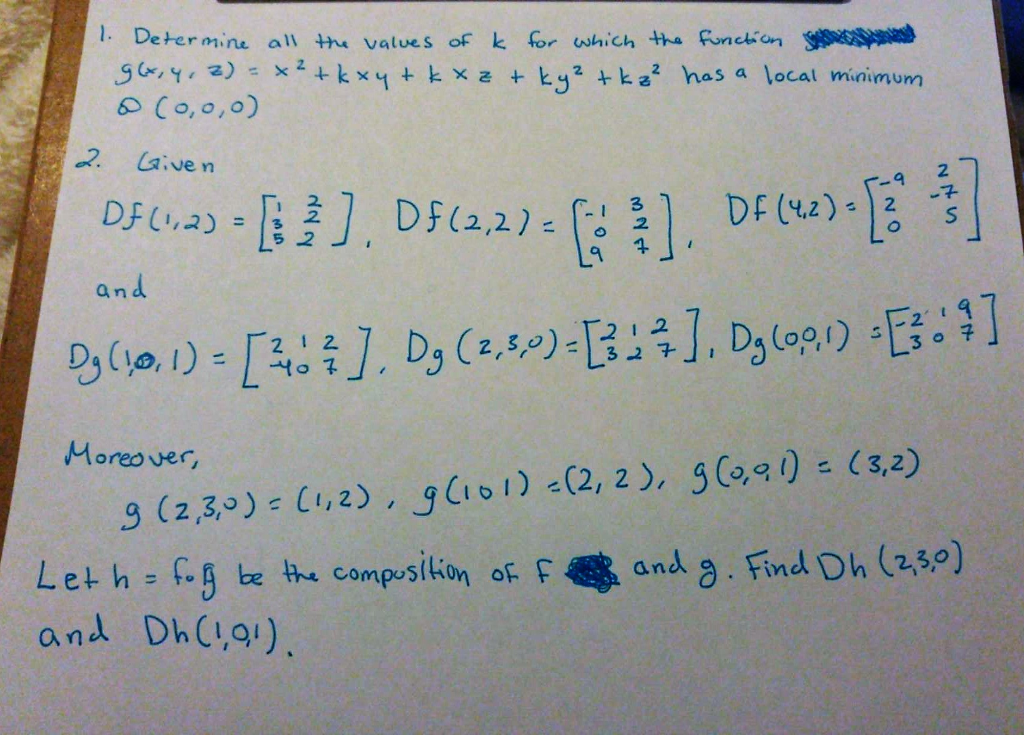 1. Determine all the values of k for which the function
g(x, y, z) = x² + kxy + kxz + ky² + kz² has a local minimum
@ (0,0,0)
2. Given
Df(1,2) = [1 2; 3 2; 5 2], Df(2,2) = [-1 3; 0 2; 9 7], Df(4,2) = [-9 2; 2 -7; 0 5]
and
Dg(1,0,1) = [2 1 2; -4 0 7], Dg(2,3,0) = [2 1 2; 3 2 7], Dg(0,0,1) = [-2 1 9; 3 0 7]
Moreover,
g(2,3,0) = (1,2), g(1 0 1) = (2,2), g(0,0,1) = (3,2)
Let h = f∘g be the composition of f and g. Find Dh(2,3,0)
and Dh(1,0,1).